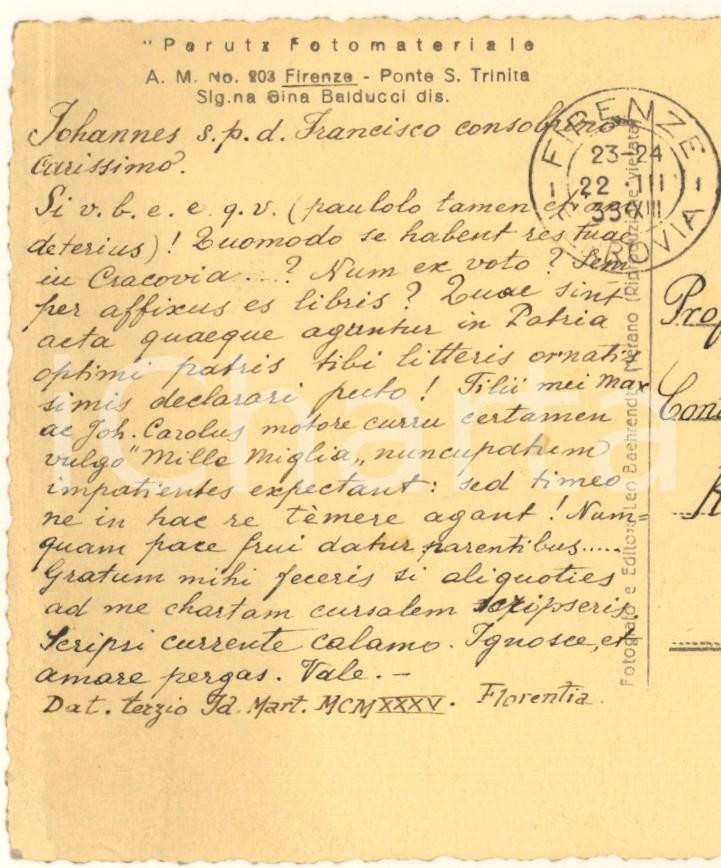 "Perutz Fotomateriale
A. M. No. 203 Firenze - Ponte S. Trinita
Sig.na Gina Balducci dis.
Johannes s.p.d. Francisco consobrino
carissimo.
Si v. b. e. e. q. v. (paululo tamen
deterius)! Quomodo se habent res tuae
in Cracovia....? Num ex voto? Sem-
per affixus es libris? Quae sint
acta quaeque aguntur in Patria
optimi patris tibi litteris ornatis
simis declarari puto! Filii mei Max
ac Joh. Carolus motore curru certamen
vulgo "Mille Miglia" nuncupatum
impatientes expectant: sed timeo
ne in hac re tèmere agant! Num=
quam pace frui datur parentibus.....
Gratum mihi feceris si aliquoties
ad me chartam cursalem scripseris.
Scripsi currente calamo. Ignosce, et
amare pergas. Vale. -
Dat. terzio Id. Mart. MCMXXXV. Florentia.
FIRENZE
23-24
22 · III
35 XIII
FERROVIA
Fotografo e Editore: Leo Baehrendt, Merano (Riproduzione vietata)
Prof
Charta